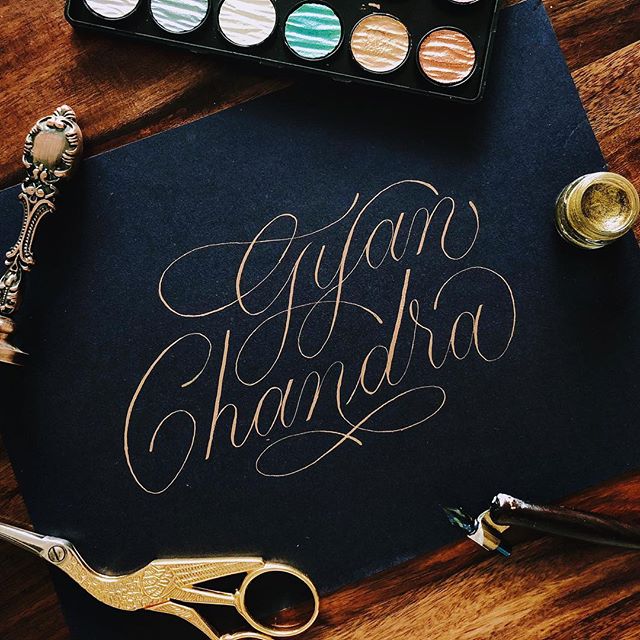 Gyan
Chandra